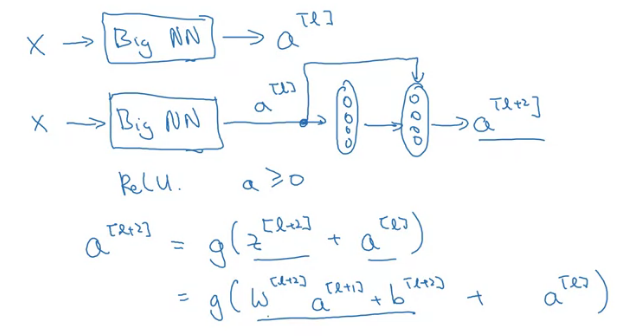 X → Big NN → a^[l]
X → Big NN → a^[l] → → a^[l+2]
ReLU. a ≥ 0
a^[l+2] = g(z^[l+2] + a^[l])
= g(W^[l+2] a^[l+1] + b^[l+2] + a^[l])